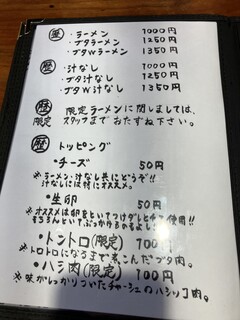 歴 ・ラーメン 1000円
・ブタラーメン 1250円
・ブタWラーメン 1350円
歴 ・汁なし 1000円
・ブタ汁なし 1250円
・ブタW汁なし 1350円
歴 限定ラーメンに関しましては、
限定 スタッフまでおたずね下さい。
歴 トッピング
・チーズ 50円
※ラーメン・汁なし共にどうぞ!!
※汁なしには特にオススメ。
・生卵 50円
※オススメは卵をといてつけダレとして使用!!
もちろんといてぶっかけるのもよしです。
・トントロ(限定) 700円
※トロトロになるまで煮こんだブタ肉。
・ハシ肉(限定) 100円
※味がしっかりついたチャーシューのハシっこ肉。